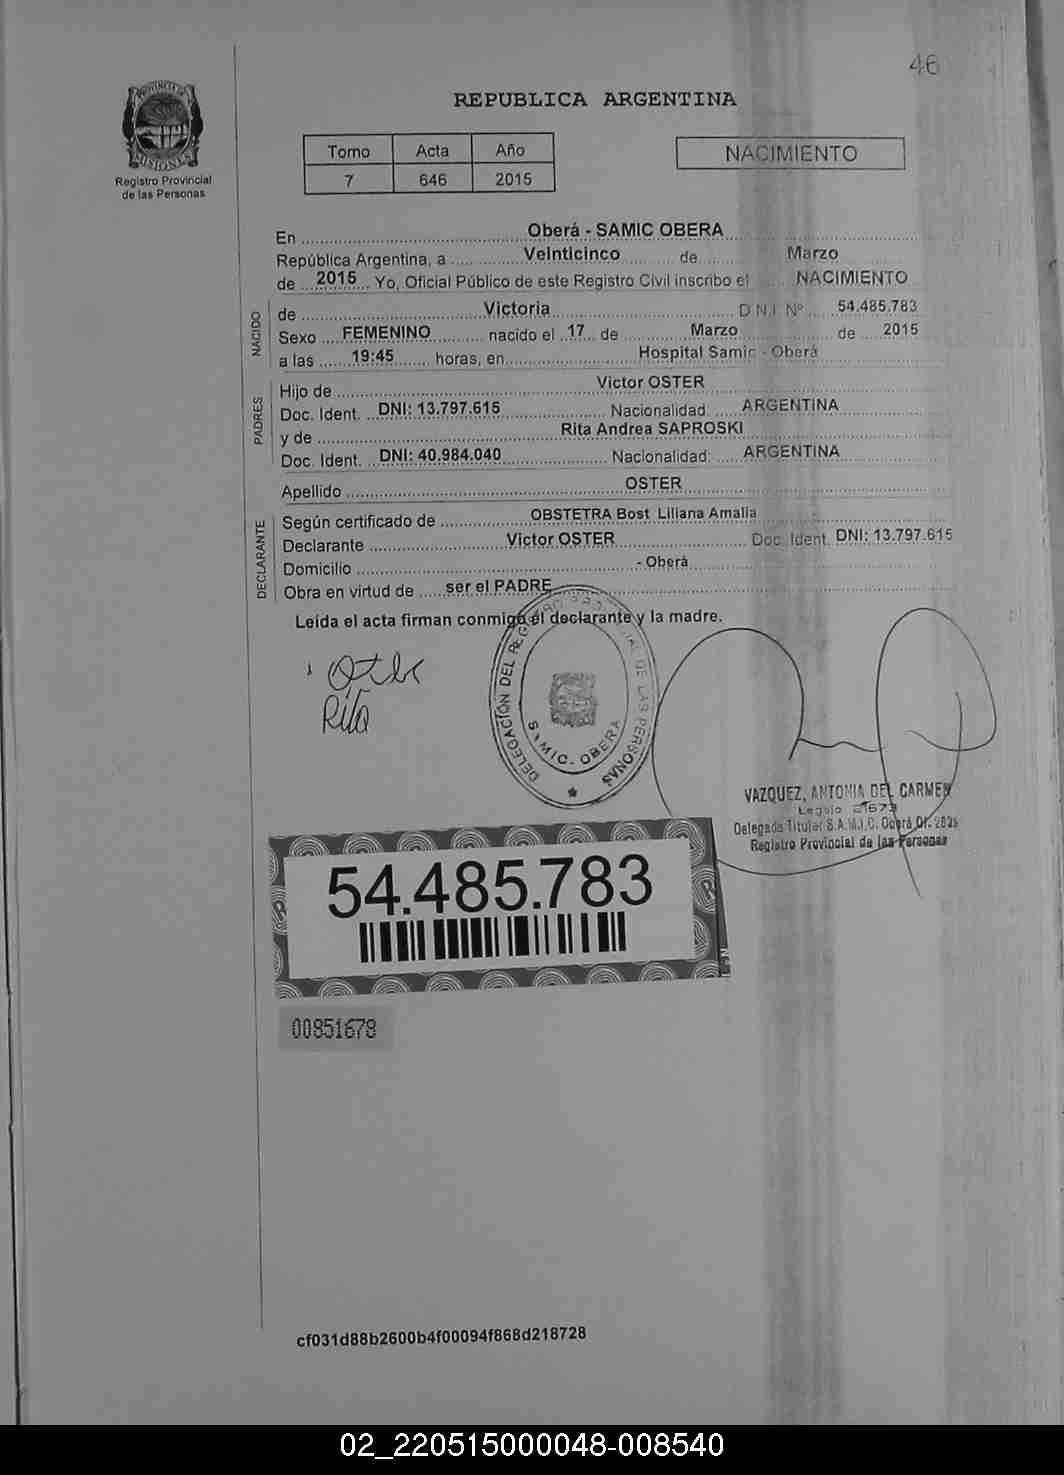 46
PROVINCIA DE
MISIONES
Registro Provincial
de las Personas
REPUBLICA ARGENTINA
Tomo Acta Año
7 646 2015
NACIMIENTO
En Oberá - SAMIC OBERA
República Argentina, a Veinticinco de Marzo
de 2015 Yo, Oficial Público de este Registro Civil inscribo el NACIMIENTO
NACIDO
de Victoria D.N.I. Nº 54.485.783
Sexo FEMENINO nacido el 17 de Marzo de 2015
a las 19:45 horas, en Hospital Samic - Oberá
PADRES
Hijo de Victor OSTER
Doc. Ident. DNI: 13.797.615 Nacionalidad: ARGENTINA
y de Rita Andrea SAPROSKI
Doc. Ident. DNI: 40.984.040 Nacionalidad: ARGENTINA
Apellido OSTER
DECLARANTE
Según certificado de OBSTETRA Bost Liliana Amalia
Declarante Victor OSTER Doc. Ident. DNI: 13.797.615
Domicilio - Oberá
Obra en virtud de ser el PADRE
Leída el acta firman conmigo el declarante y la madre.
Rita
DELEGACIÓN DEL REGISTRO PROVINCIAL DE LAS PERSONAS
SAMIC - OBERA
VAZQUEZ, ANTONIA DEL CARMEN
Legajo
Delegada Titular S.A.M.I.C. Oberá Of.
Registro Provincial de las Personas
54.485.783
00851678
cf031d88b2600b4f00094f868d218728
02_220515000048-008540